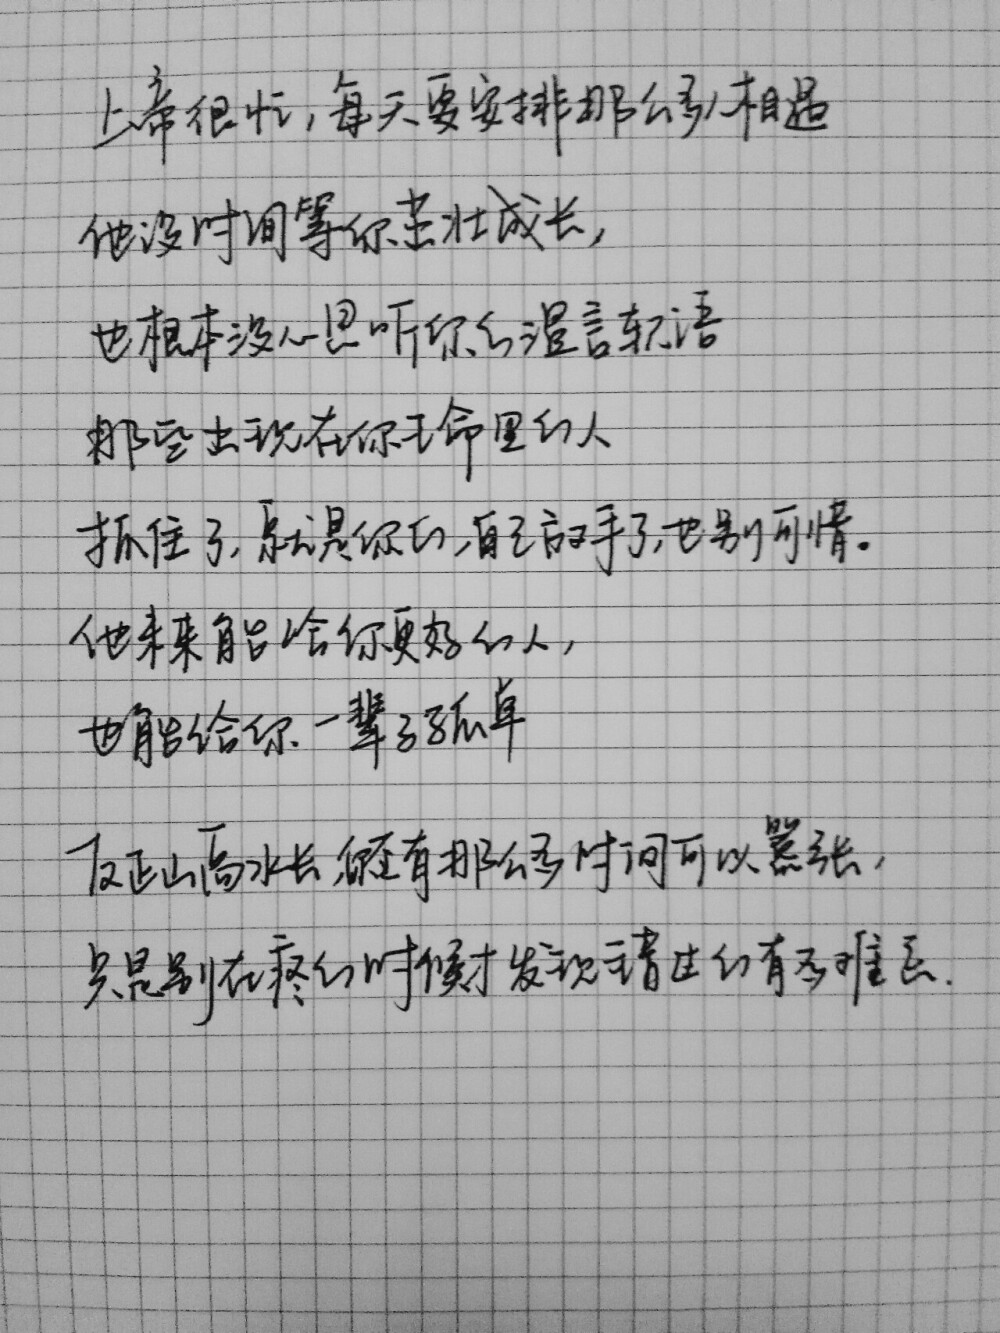 上帝很忙，每天要安排那么多人相遇
他没时间等你茁壮成长，
也根本没心思听你的温言软语
那些出现在你生命里的人
抓住了，就是你的，自己放手了，也别可惜。
他未来能给你更好的人，
也能给你一辈子孤单
反正山高水长，你还有那么多时间可以嚣张，
只是别在疼的时候才发现清醒的有多难看.